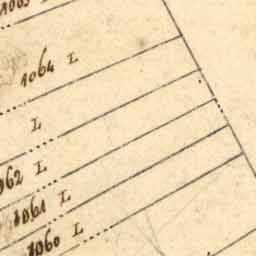 1065 L
1064 L
L
1062 L
1061 L
1060 L